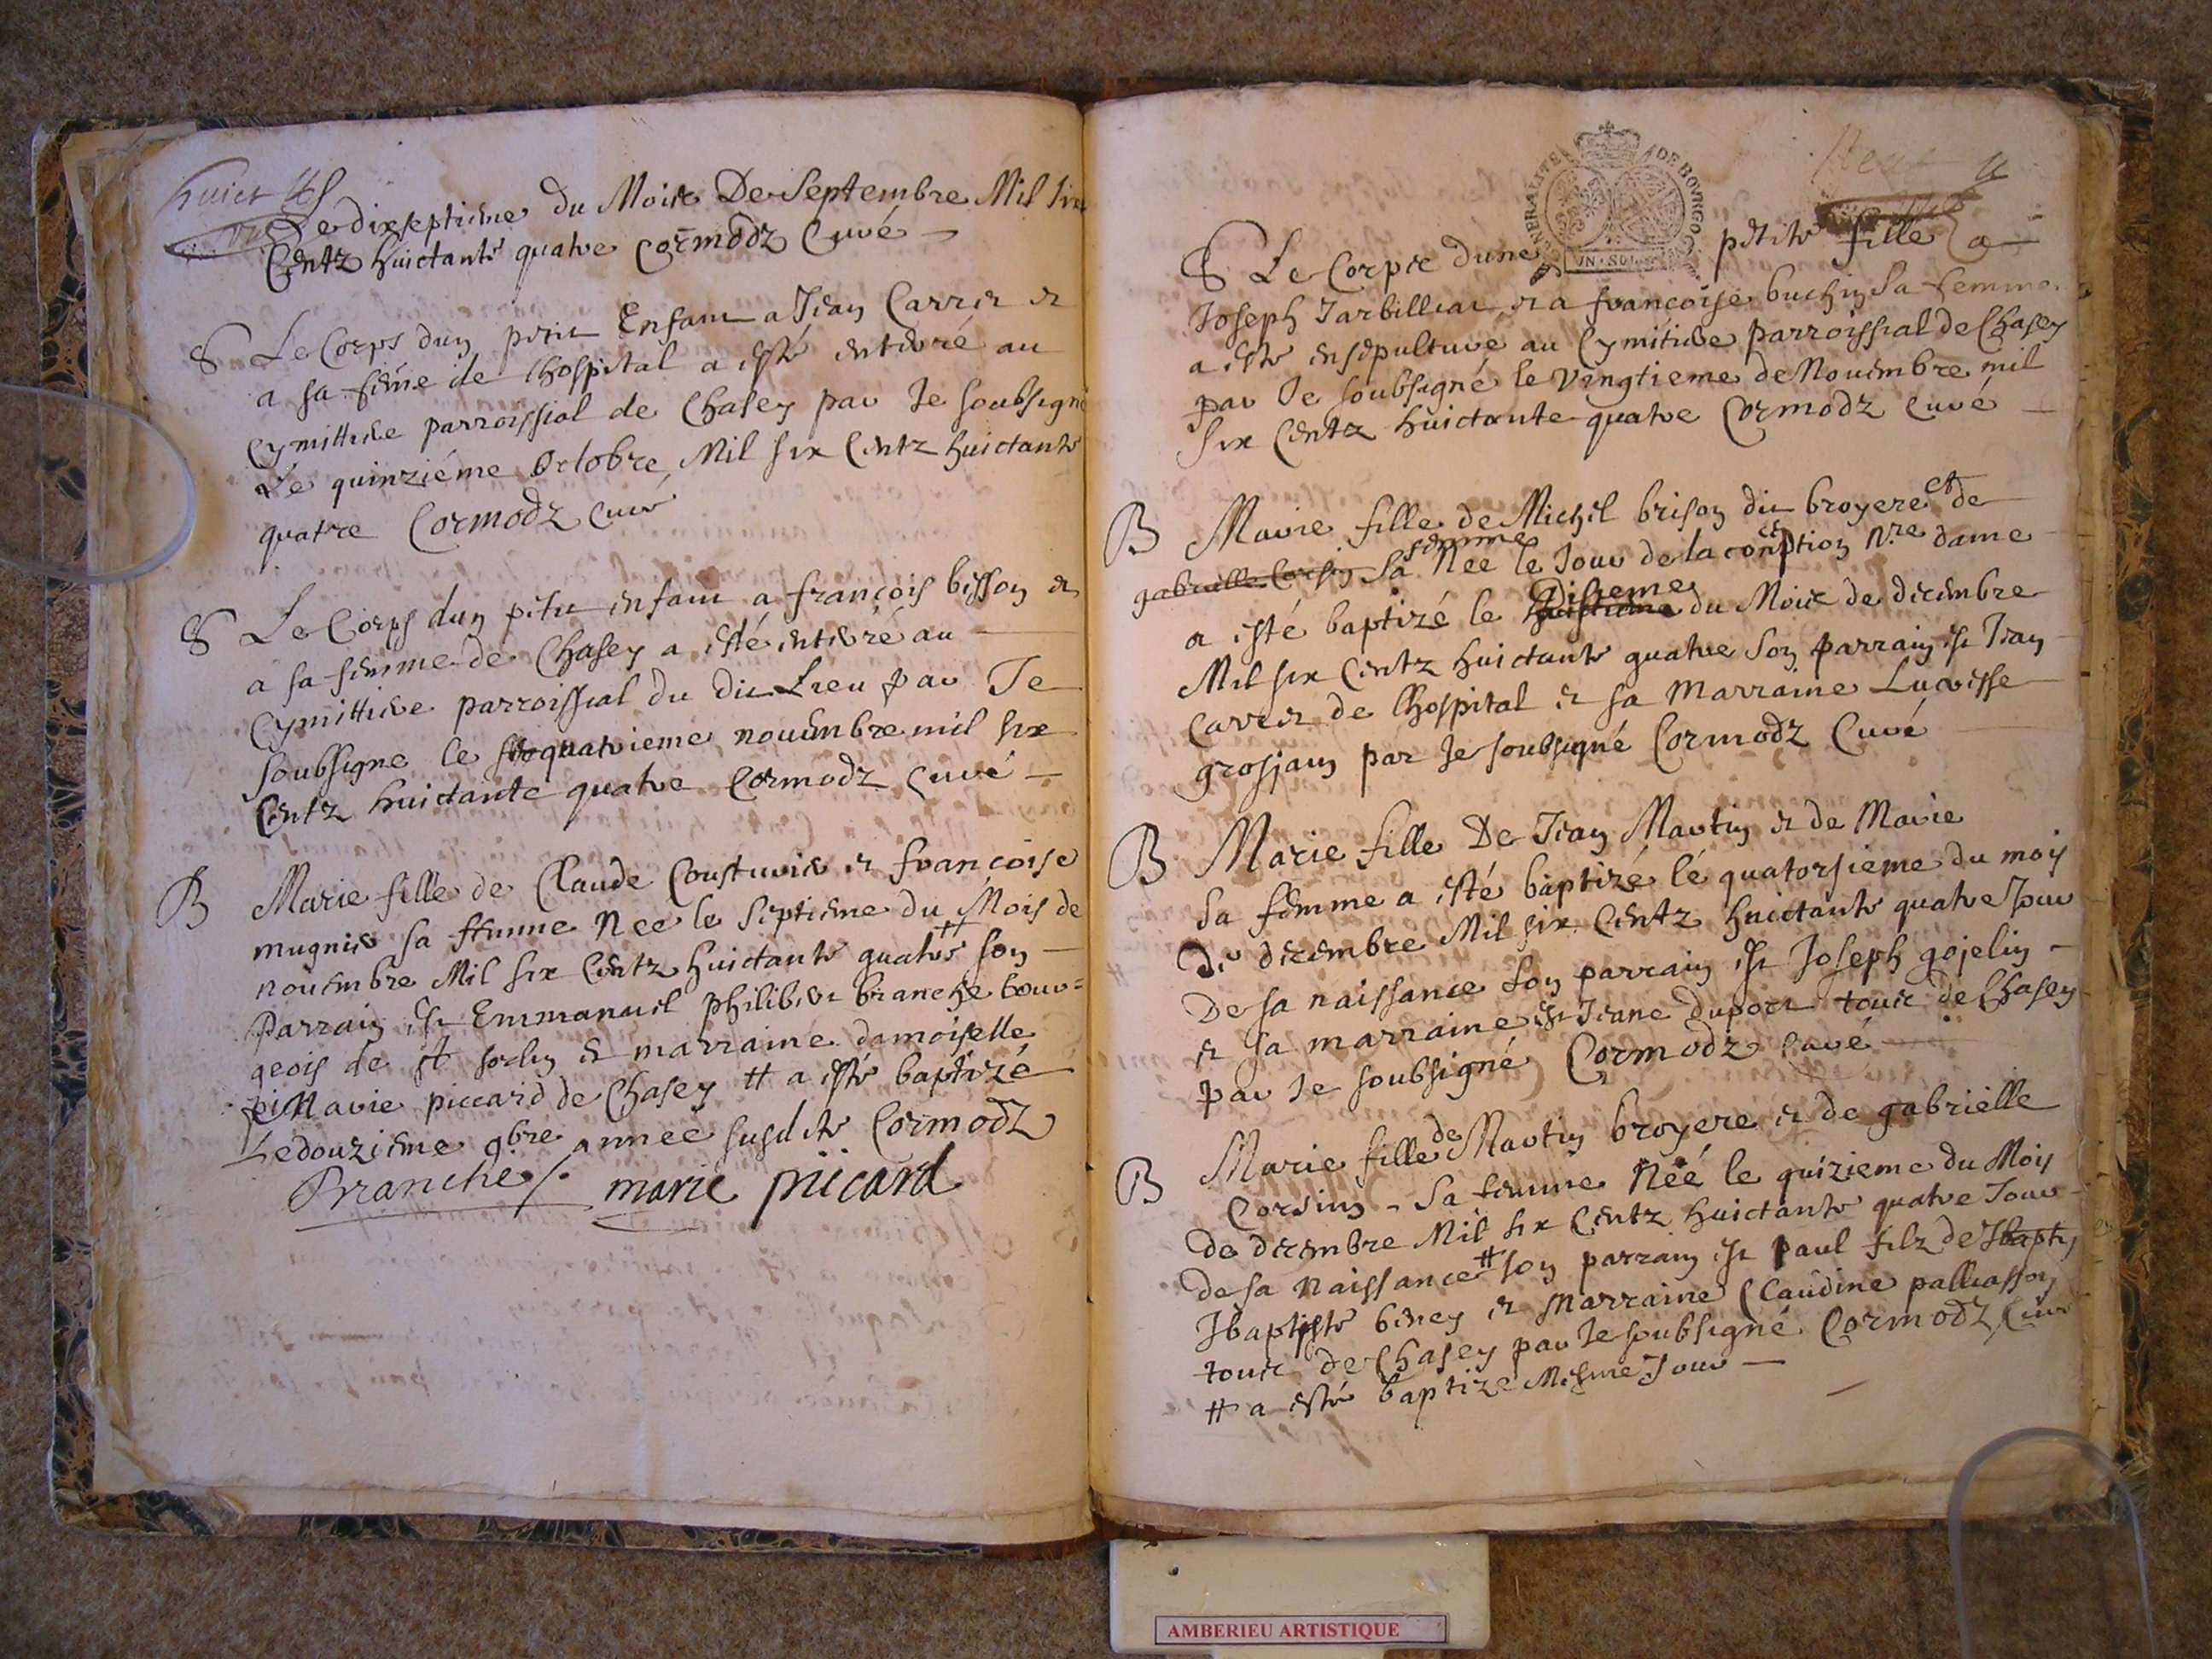 huict
Le dixseptieme du Moise De Septembre Mil six
Centz huictante quatre Cormodz Curé
S Le Corps dun petit Enfant a Jean Carrer et
a sa feme de Lhospital a esté enterré au
Cymittiere parroissial de Chasey par Je soubsigné
Le quinziéme Octobre Mil six Centz huictante
quatre Cormodz Curé
S Le Corps dun petit enfant a françois bisson et
a sa femme de Chasey a esté enterré au
Cymittiere parroissial du dit Lieu par Je
soubsigne le quatrieme nouembre mil six
Centz huictante quatre Cormodz Curé
B Marie fille de Claude Cousturier et francoise
mugnier sa ffemme Nee le Septieme du Mois de
nouembre Mil six Centz huictante quatre # son
Parrain est Emmanuel philibert branche bour=
geois de st sorlin et marraine damoiselle
Marie piccard de Chasey # a esté baptizé
Le douzieme 9bre annee susdite Cormodz
Branche marie piicard
GENERALITE DE BOVRGOG
UN·SOL
S Le Corps dune petite fille a
Joseph Tarbilliat et a francoise buchin sa femme
a este ensepulturé au Cymitiere parroissial de Chasey
par Je soubsigné le Vingtieme de Nouembre mil
six Centz huictante quatre Cormodz Curé
B Marie fille de Michel brison dit broyere et de
gabrielle Corsin sa femme Née le Jour de la conception Nre dame
a esté baptizé le Disieme du Mois de decembre
Mil six Centz huictante quatre son parrain est Jean
Carrer de Lhospital et sa Marraine Lucresse
grosjean par Je soubsigné Cormodz Curé
B Marie fille De Jean Martin et de Marie
sa femme a esté baptizé lé quatorsieme du mois
De decembre Mil six Centz huictante quatre Jour
De sa naissance son parrain est Joseph gojelin
et sa marraine est Jeane duport tous de Chasey
par Je soubsigné Cormodz Curé
B Marie fille de Martin broyere et de gabrielle
Corsin sa femme Néé le quizieme du Mois
de decembre Mil six Centz huictante quatre Jour
de sa Naissance # son parrain est Paul filz de Jbapty
Jbaptiste biney et Marraine Claudine palliasson
tous de Chasey par Je soubsigné Cormodz Curé
# a esté baptize Mesme Jour
AMBERIEU ARTISTIQUE